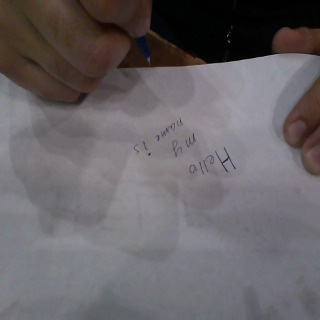 Hello
my
name is